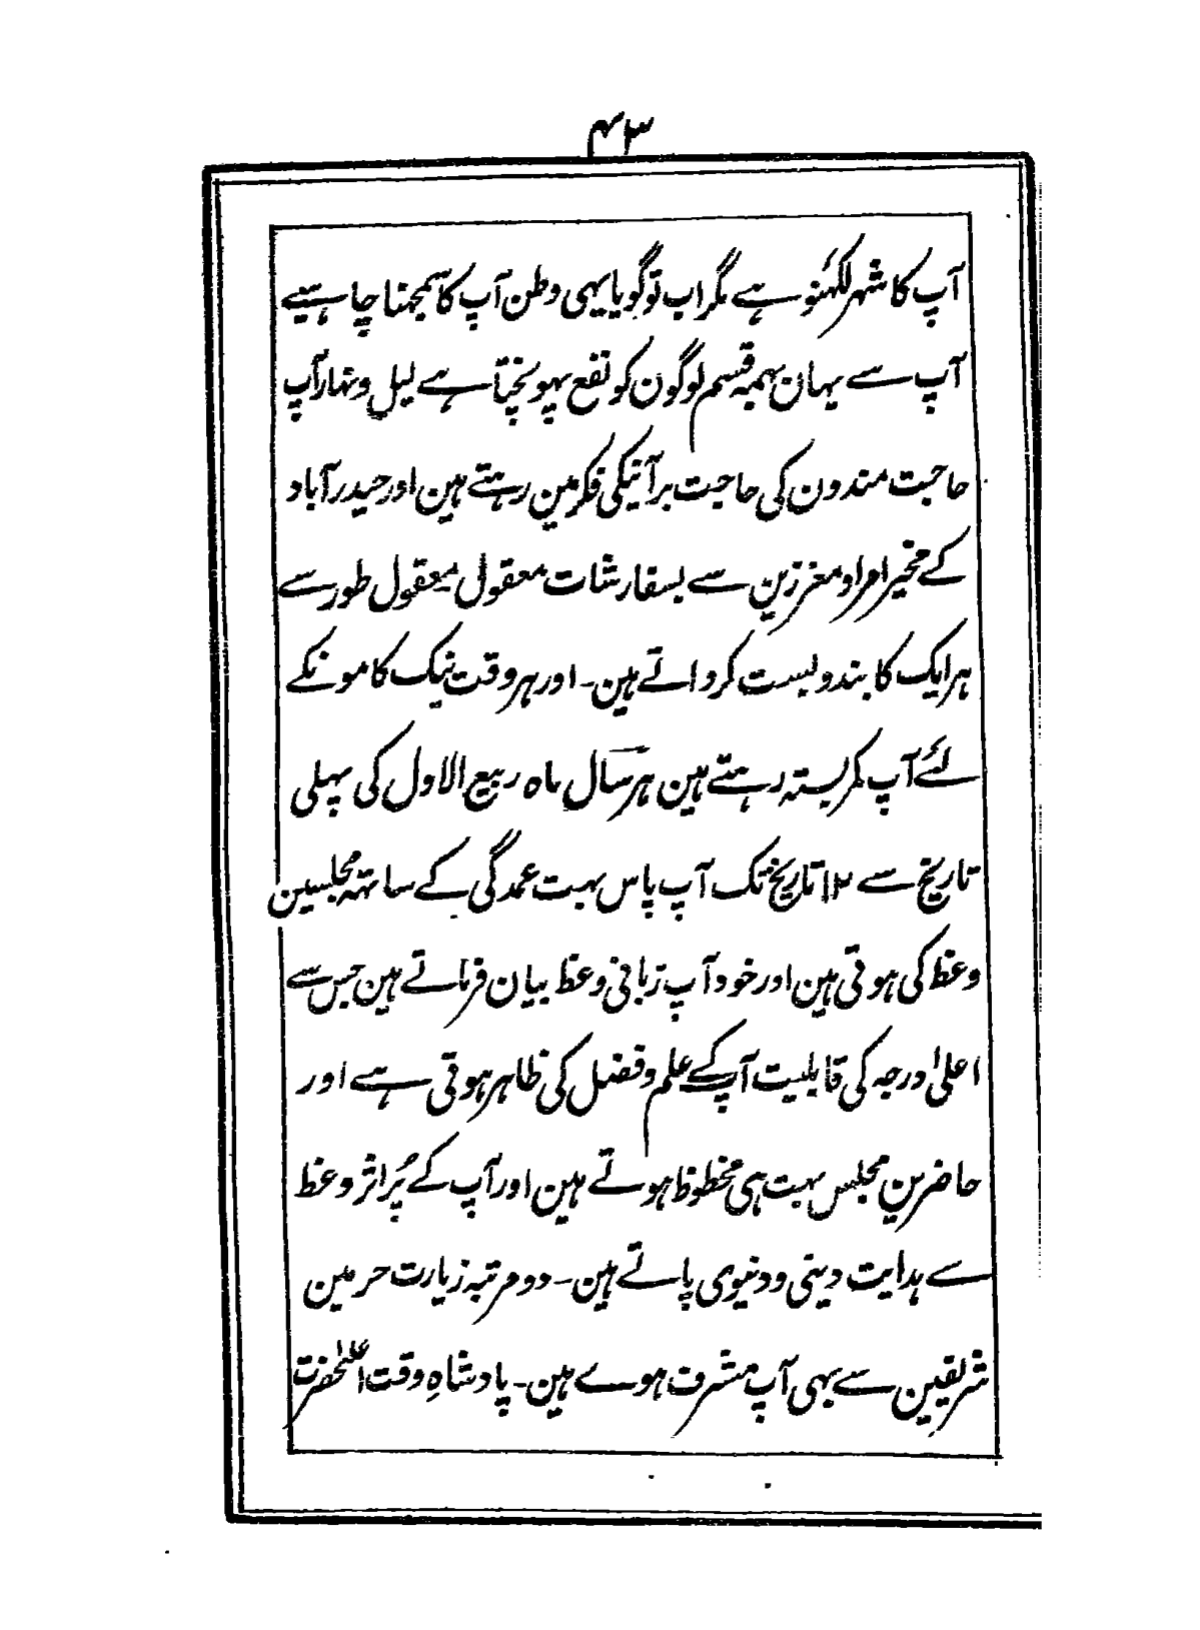 ۴۳
آپ کا شہر لکھنؤ ہے مگر اب تو گویا یہی وطن آپ کا سمجہنا چاہیے
آپ سے یہان ہمہ قسم لوگون کو نفع پہونچتا ہے لیل و نہار آپ
حاجت مندون کی حاجت برآنیکی فکر مین رہتے ہین اور حیدرآباد
کے مخیر امرا و معززین سے بسفارشات معقول بمعقول طور سے
ہر ایک کا بندوبست کرواتے ہین۔ اور ہر وقت نیک کامونکے
لئے آپ کمر بستہ رہتے ہین ہر سال ماہ ربیع الاول کی پہلی
تاریخ سے ۱۲ تاریخ تک آپ پاس بہت عمدگی کے ساتہہ مجلسین
وعظ کی ہوتی ہین اور خود آپ زبانی وعظ بیان فرماتے ہین جس سے
اعلیٰ درجہ کی قابلیت آپ کے علم و فضل کی ظاہر ہوتی ہے اور
حاضرین مجلس بہت ہی محظوظ ہوتے ہین اور آپ کے پُر اثر وعظ
سے ہدایت دینی و دنیوی پاتے ہین۔ دو مرتبہ زیارت حرمین
شریفین سے بہی آپ مشرف ہوے ہین۔ پادشاہِ وقت اعلیٰحضرت